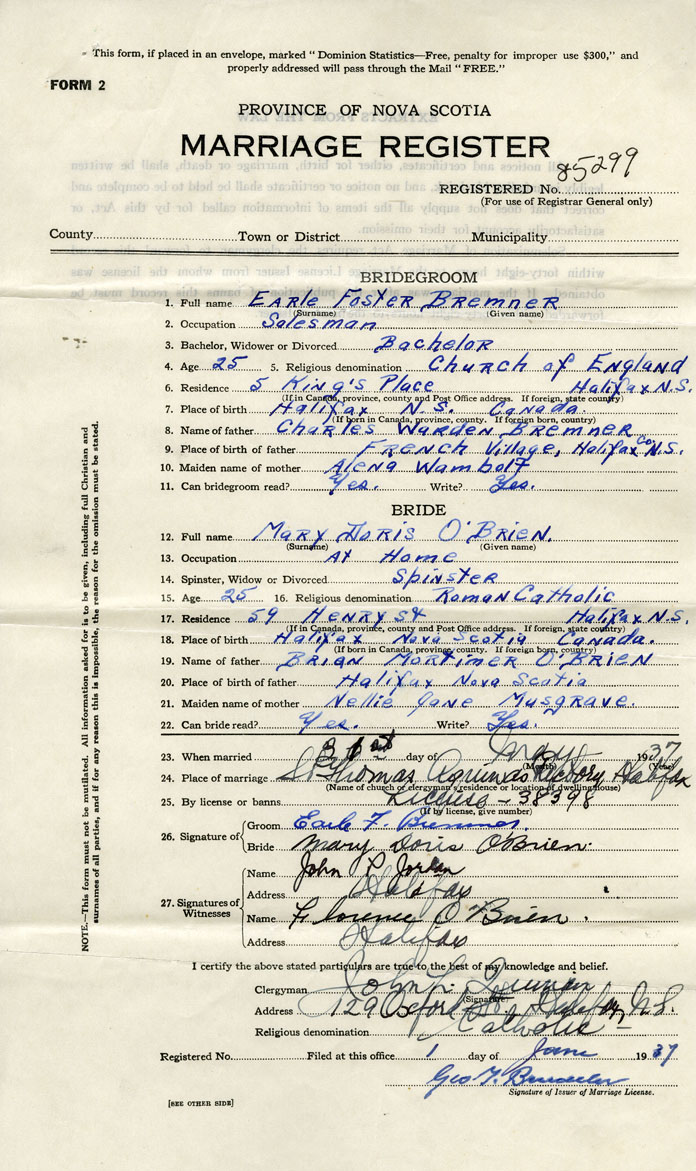 This form, if placed in an envelope, marked "Dominion Statistics—Free, penalty for improper use $300," and
properly addressed will pass through the Mail "FREE."
FORM 2
PROVINCE OF NOVA SCOTIA
MARRIAGE REGISTER
REGISTERED No. 85299
(For use of Registrar General only)
County Town or District Municipality
BRIDEGROOM
1. Full name Earle Foster Bremner
(Surname) (Given name)
2. Occupation Salesman
3. Bachelor, Widower or Divorced Bachelor
4. Age 25 5. Religious denomination Church of England
6. Residence 5 King's Place Halifax N.S.
(If in Canada, province, county and Post Office address. If foreign, state country)
7. Place of birth Halifax N.S. Canada.
(If born in Canada, province, county. If foreign born, country)
8. Name of father Charles Warden Bremner
9. Place of birth of father French Village, Halifax Co. N.S.
10. Maiden name of mother Alena Wambolt
11. Can bridegroom read? Yes. Write? Yes.
BRIDE
12. Full name Mary Doris O'Brien.
(Surname) (Given name)
13. Occupation At Home
14. Spinster, Widow or Divorced Spinster
15. Age 25 16. Religious denomination Roman Catholic
17. Residence 59 Henry St Halifax N.S.
(If in Canada, province, county and Post Office address. If foreign, state country)
18. Place of birth Halifax Nova Scotia Canada.
(If born in Canada, province, county. If foreign born, country)
19. Name of father Brian Mortimer O'Brien
20. Place of birth of father Halifax Nova Scotia
21. Maiden name of mother Nellie Jane Musgrave.
22. Can bride read? Yes. Write? Yes.
23. When married day of May 1937
(Month) (Year)
24. Place of marriage St Thomas Aquinas Rectory Halifax
(Name of church or clergyman's residence or location of dwelling house)
25. By license or banns License - 38398
(If by license, give number)
26. Signature of Groom Earle F. Bremner.
Bride Mary Doris O'Brien.
27. Signatures of Witnesses Name John P. Jordan
Address Halifax
Name Florence O'Brien.
Address Halifax
I certify the above stated particulars are true to the best of my knowledge and belief.
Clergyman John L.
(Signature)
Address 129 Oxford St. Halifax, N.S.
Religious denomination Catholic
Registered No. Filed at this office 1 day of June 1937
Geo
Signature of Issuer of Marriage License.
[SEE OTHER SIDE]
NOTE.—This form must not be mutilated. All information asked for is to be given, including full Christian and
surnames of all parties, and if for any reason this is impossible, the reason for the omission must be stated.